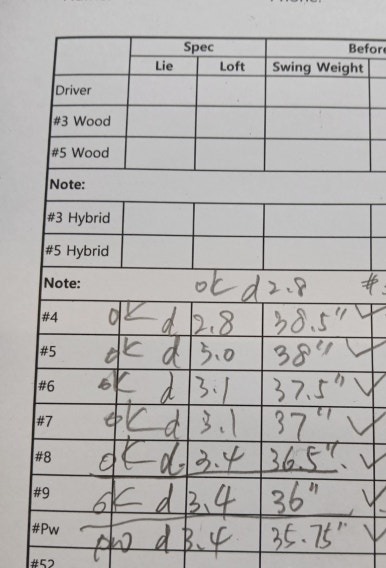 Spec Before
Lie Loft Swing Weight
Driver
#3 Wood
#5 Wood
Note:
#3 Hybrid
#5 Hybrid
Note: ok d 2.8 #
#4 ok d 2.8 38.5" ✓
#5 ok d 3.0 38" ✓
#6 ok d 3.1 37.5" ✓
#7 ok d 3.1 37" ✓
#8 ok d. 3.4 36.5" ✓
#9 ok d 3.4 36" ✓
#Pw pw d 3.4 35.75" ✓
#52